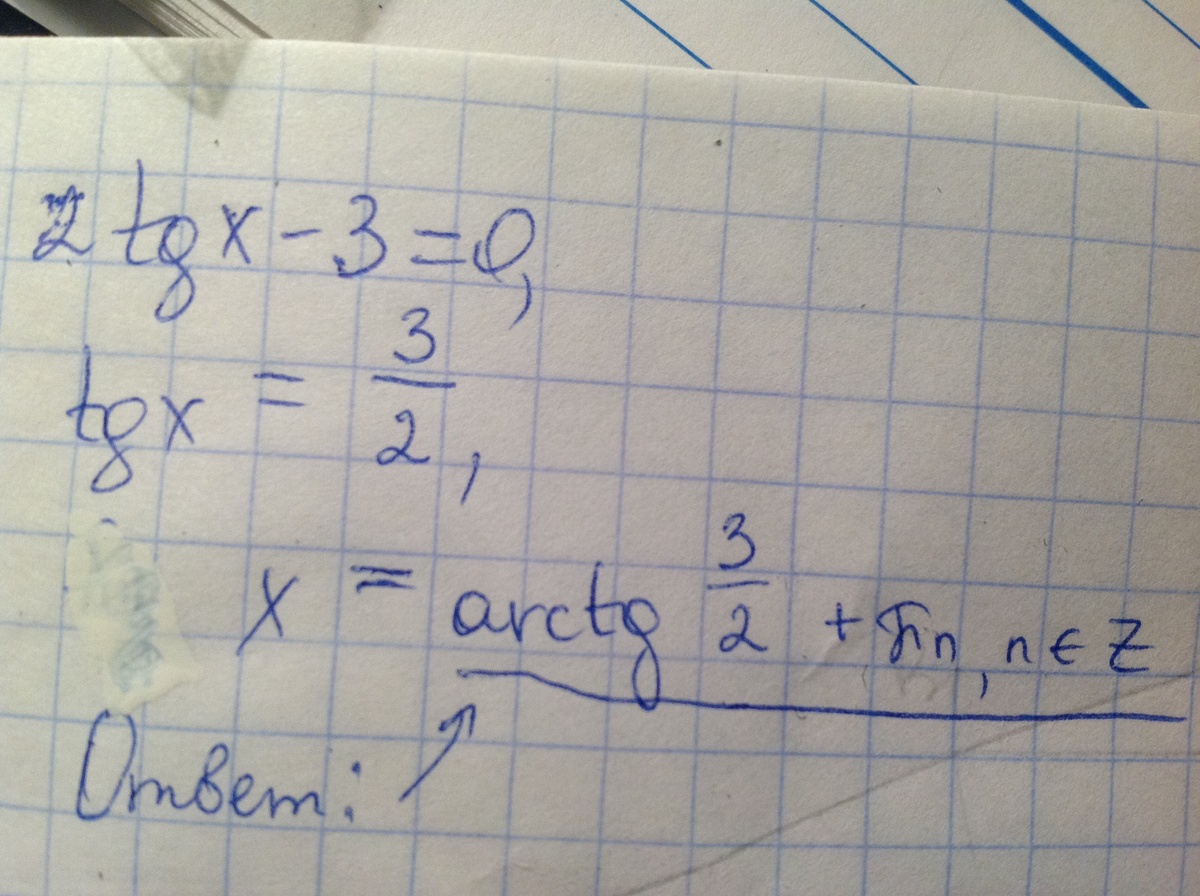 2 tg x - 3 = 0,
tg x = 3/2,
x = arctg 3/2 + πn, n ∈ Z
Ответ: ↗